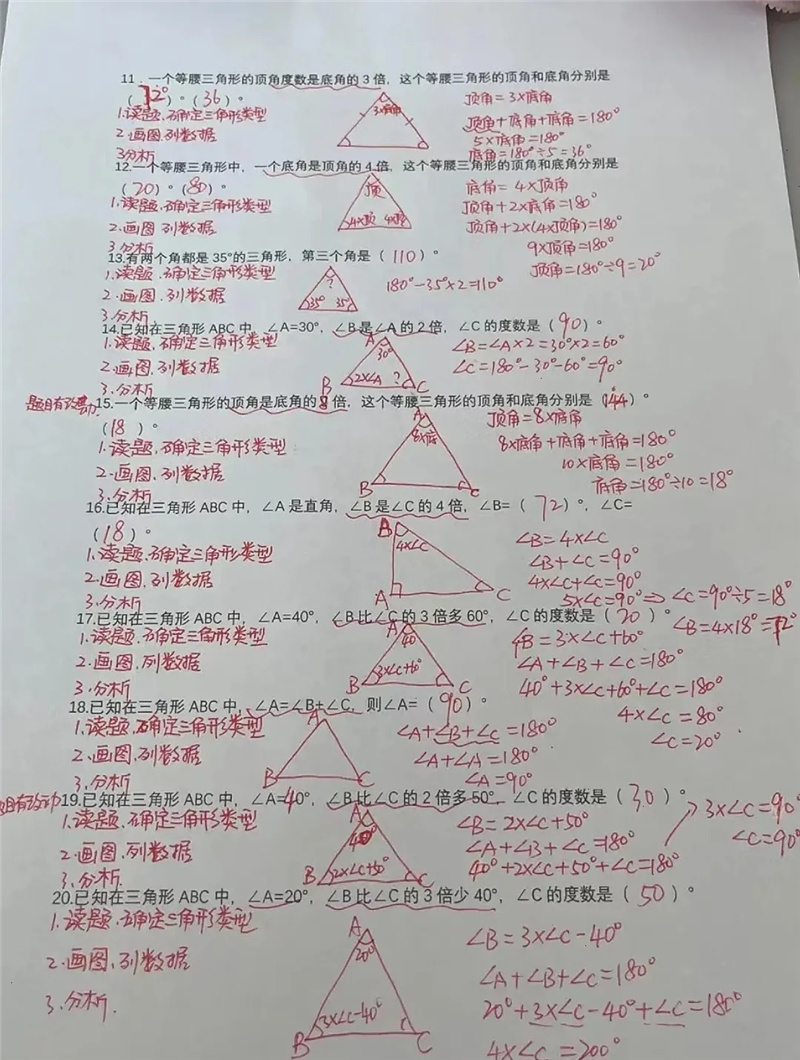 11．一个等腰三角形的顶角度数是底角的 3 倍，这个等腰三角形的顶角和底角分别是
（72°）°（36）°。
1.读题、确定三角形类型
2.画图、列数据
3分析
3×底角
顶角=3×底角
顶角+底角+底角=180°
5×底角=180°
底角=180°÷5=36°
12.一个等腰三角形中，一个底角是顶角的 4 倍，这个等腰三角形的顶角和底角分别是
（20）°（80）°。
1.读题、确定三角形类型
2.画图、列数据
3.分析
顶
4×顶 4×顶
底角= 4×顶角
顶角+2×底角=180°
顶角+2×(4×顶角)=180°
9×顶角=180°
顶角=180°÷9=20°
13.有两个角都是 35°的三角形，第三个角是（ 110 ）°。
1.读题、确定三角形类型
2.画图、列数据
3.分析
?
35° 35°
180°-35°×2=110°
14.已知在三角形 ABC 中，∠A=30°，∠B 是∠A 的 2 倍，∠C 的度数是（ 90 ）°。
1.读题、确定三角形类型
2.画图、列数据
3.分析
A
30°
B 2×∠A ? C
∠B=∠A×2=30°×2=60°
∠C=180°-30°-60°=90°
题目有改动 15.一个等腰三角形的顶角是底角的 8 倍，这个等腰三角形的顶角和底角分别是（144）°
（18 ）°。
1.读题、确定三角形类型
2.画图、列数据
3.分析
A
8×底
B C
顶角=8×底角
8×底角+底角+底角=180°
10×底角=180°
底角=180°÷10=18°
16.已知在三角形 ABC 中，∠A 是直角，∠B 是∠C 的 4 倍，∠B=（ 72）°，∠C=
（18 ）°。
1.读题、确定三角形类型
2.画图、列数据
3.分析
B
4×∠C
A C
∠B=4×∠C
∠B+∠C=90°
4×∠C+∠C=90°
5×∠C=90° ⇒ ∠C=90°÷5=18°
∠B=4×18°=72°
17.已知在三角形 ABC 中，∠A=40°，∠B 比∠C 的 3 倍多 60°，∠C 的度数是（ 20 ）°
1.读题、确定三角形类型
2.画图、列数据
3.分析
A
40
B 3×∠C+60° C
∠B=3×∠C+60°
∠A+∠B+∠C=180°
40°+3×∠C+60°+∠C=180°
4×∠C=80°
∠C=20°
18.已知在三角形 ABC 中，∠A=∠B+∠C，则∠A=（ 90 ）°。
1.读题、确定三角形类型
2.画图、列数据
3.分析
A
B C
∠A+∠B+∠C=180°
∠A+∠A=180°
∠A=90°
题目有改动 19.已知在三角形 ABC 中，∠A=40°，∠B 比∠C 的 2 倍多 50°，∠C 的度数是（ 30 ）°。
1.读题、确定三角形类型
2.画图、列数据
3.分析.
A
40°
B 2×∠C+50° C
∠B=2×∠C+50°
∠A+∠B+∠C=180°
40°+2×∠C+50°+∠C=180°
3×∠C=90°
∠C=90°
20.已知在三角形 ABC 中，∠A=20°，∠B 比∠C 的 3 倍少 40°，∠C 的度数是（ 50 ）°。
1.读题、确定三角形类型
2.画图、列数据
3.分析.
A
20°
B 3×∠C-40° C
∠B=3×∠C-40°
∠A+∠B+∠C=180°
20°+3×∠C-40°+∠C=180°
4×∠C=200°